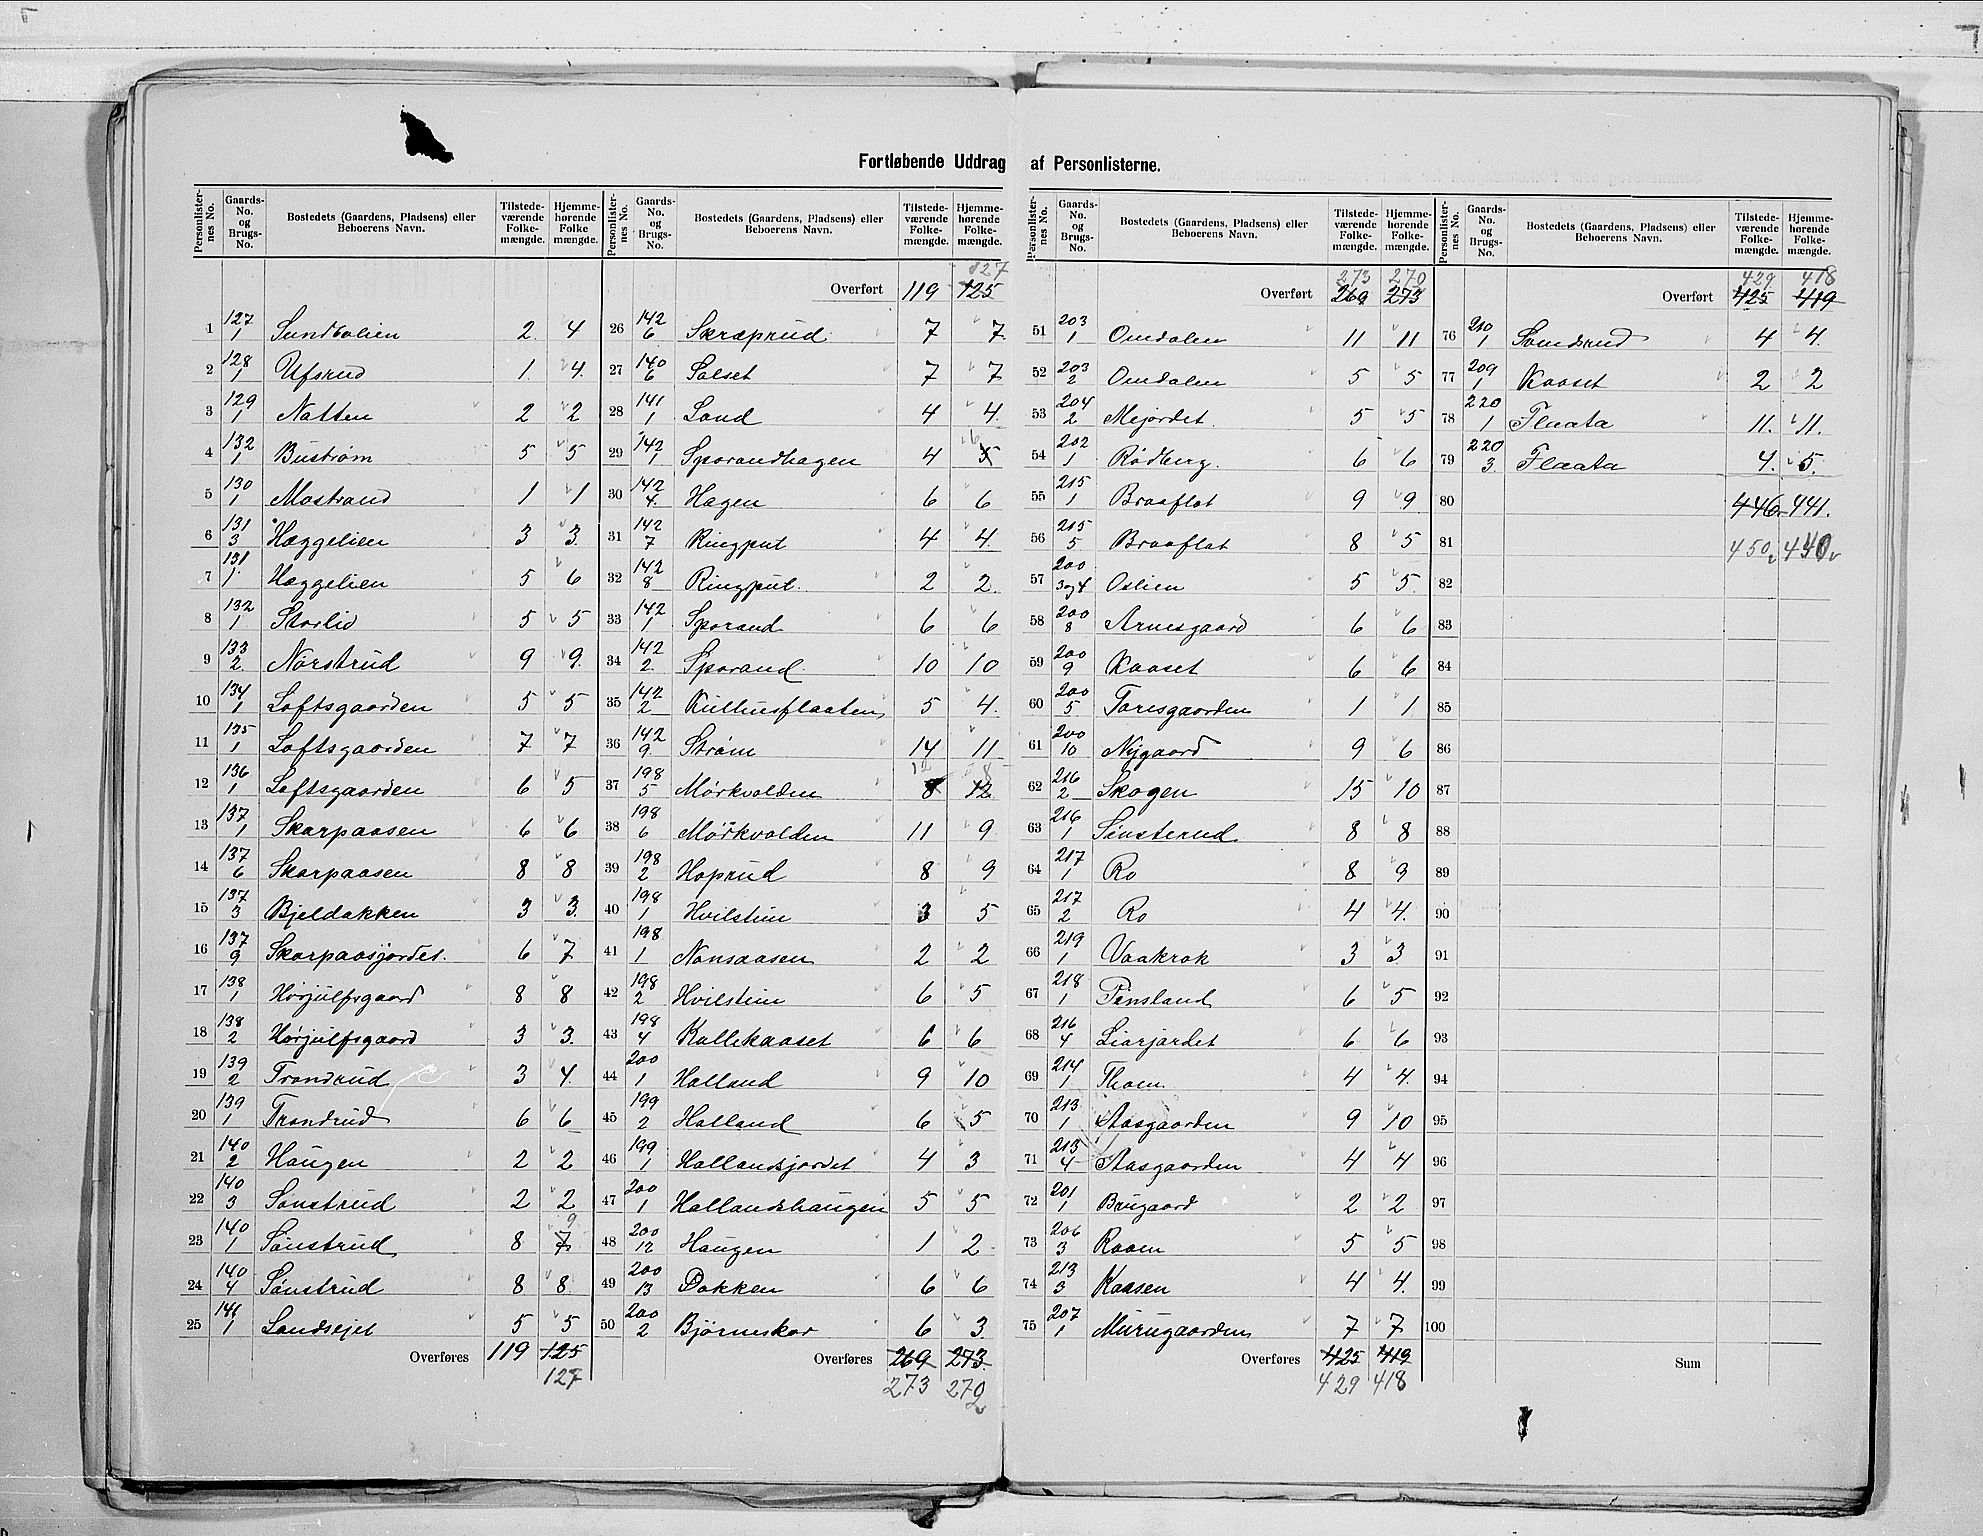 Fortløbende Uddrag af Personlisterne.
Personlister-nes No. | Gaards-No. og Brugs-No. | Bostedets (Gaardens, Pladsens) eller Beboerens Navn. | Tilstede-værende Folke-mængde. | Hjemme-hørende Folke mængde.
1 127/1 Sundbolien 2 4
2 128/1 Ufsrud 1 4
3 129/1 Natten 2 2
4 132/1 Bustrøm 5 5
5 130/1 Mostrand 1 1
6 131/3 Hæggelien 3 3
7 131/1 Hæggelien 5 6
8 132/1 Storlid 5 5
9 133/2 Nørstrud 9 9
10 134/1 Loftsgaarden 5 5
11 135/1 Loftsgaarden 7 7
12 136/1 Loftsgaarden 6 5
13 137/1 Skarpaasen 6 6
14 137/6 Skarpaasen 8 8
15 137/3 Bjeldokken 3 3
16 137/9 Skarpaasjordet. 6 7
17 138/1 Hørjulfsgaard 8 8
18 138/2 Hørjulfsgaard 3 3
19 139/2 Trondrud 3 4
20 139/1 Trondrud 6 6
21 140/2 Haugen 2 2
22 140/3 Sønstrud 2 2
23 140/1 Sønstrud 8 7 9
24 140/4 Sønstrud 8 8
25 141/1 Landsejet 5 5
Overføres 119 125
127
Personlister-nes No. | Gaards-No. og Brugs-No. | Bostedets (Gaardens, Pladsens) eller Beboerens Navn. | Tilstede-værende Folke-mængde. | Hjemme-hørende Folke-mængde.
127
Overført 119 125
26 142/6 Skræprud 7 7
27 140/6 Solset 7 7
28 141/1 Land 4 4
29 142/1 Sporandhagen 4 5 6
30 142/4 Hagen 6 6
31 142/7 Ringput 4 4
32 142/8 Ringput 2 2
33 142/1 Sporand 6 6
34 142/2 Sporand 10 10
35 142/2 Kulhusflaaten 5 4
36 142/9 Strøm 14 11
37 198/5 Mørkvolden 8 12 12 8
38 198/6 Mørkvolden 11 9
39 198/2 Hoprud 8 9
40 198/1 Hvilstun 3 5
41 198/1 Nonsaasen 2 2
42 198/2 Hvilstun 6 5
43 198/4 Kallekaaset 6 6
44 200/1 Halland 9 10
45 199/2 Halland 6 5
46 199/1 Hallandsjordet 4 3
47 200/1 Hallandshaugen 5 5
48 200/12 Haugen 1 2
49 200/13 Dokken 6 6
50 200/2 Bjørneskar 6 3
Overføres 269 273
273 270
Personlister-nes No. | Gaards-No. og Brugs-No. | Bostedets (Gaardens, Pladsens) eller Beboerens Navn. | Tilstede-værende Folke-mængde. | Hjemme-hørende Folke-mængde.
273 270
Overført 269 273
51 203/1 Omdalen 11 11
52 203/2 Omdalen 5 5
53 204/2 Mejordet. 5 5
54 202/1 Rødberg. 6 6
55 215/1 Braaflat 9 9
56 215/5 Braaflat 8 5
57 200/3og4 Oslien 5 5
58 200/8 Arnesgaard 6 6
59 200/9 Kaaset 6 6
60 200/5 Toresgaarden 1 1
61 200/10 Nygaard 9 6
62 216/2 Skogen 15 10
63 216/1 Sønsterud 8 8
64 217/1 Ro 8 9
65 217/2 Ro 4 4
66 219/1 Vaakrak 3 3
67 218/1 Tinsland 6 5
68 216/4 Liarjordet 6 6
69 214/1 Thoen 4 4
70 213/1 Aasgaarden 9 10
71 213/4 Aasgaarden 4 4
72 201/1 Brugaard 2 2
73 206/3 Raaen 5 5
74 213/3 Kaasen 4 4
75 207/1 Murugaarden 7 7
Overføres 425 419
429 418
Personlister-nes No. | Gaards-No. og Brugs-No. | Bostedets (Gaardens, Pladsens) eller Beboerens Navn. | Tilstede-værende Folke-mængde. | Hjemme-hørende Folke-mængde.
429 418
Overført 425 419
76 210/1 Somdrud 4 4
77 209/1 Kaaset 2 2
78 220/1 Flaata 11. 11.
79 220/3 Flaata 4. 5.
80 446 441.
81 450 440
82
83
84
85
86
87
88
89
90
91
92
93
94
95
96
97
98
99
100
Sum